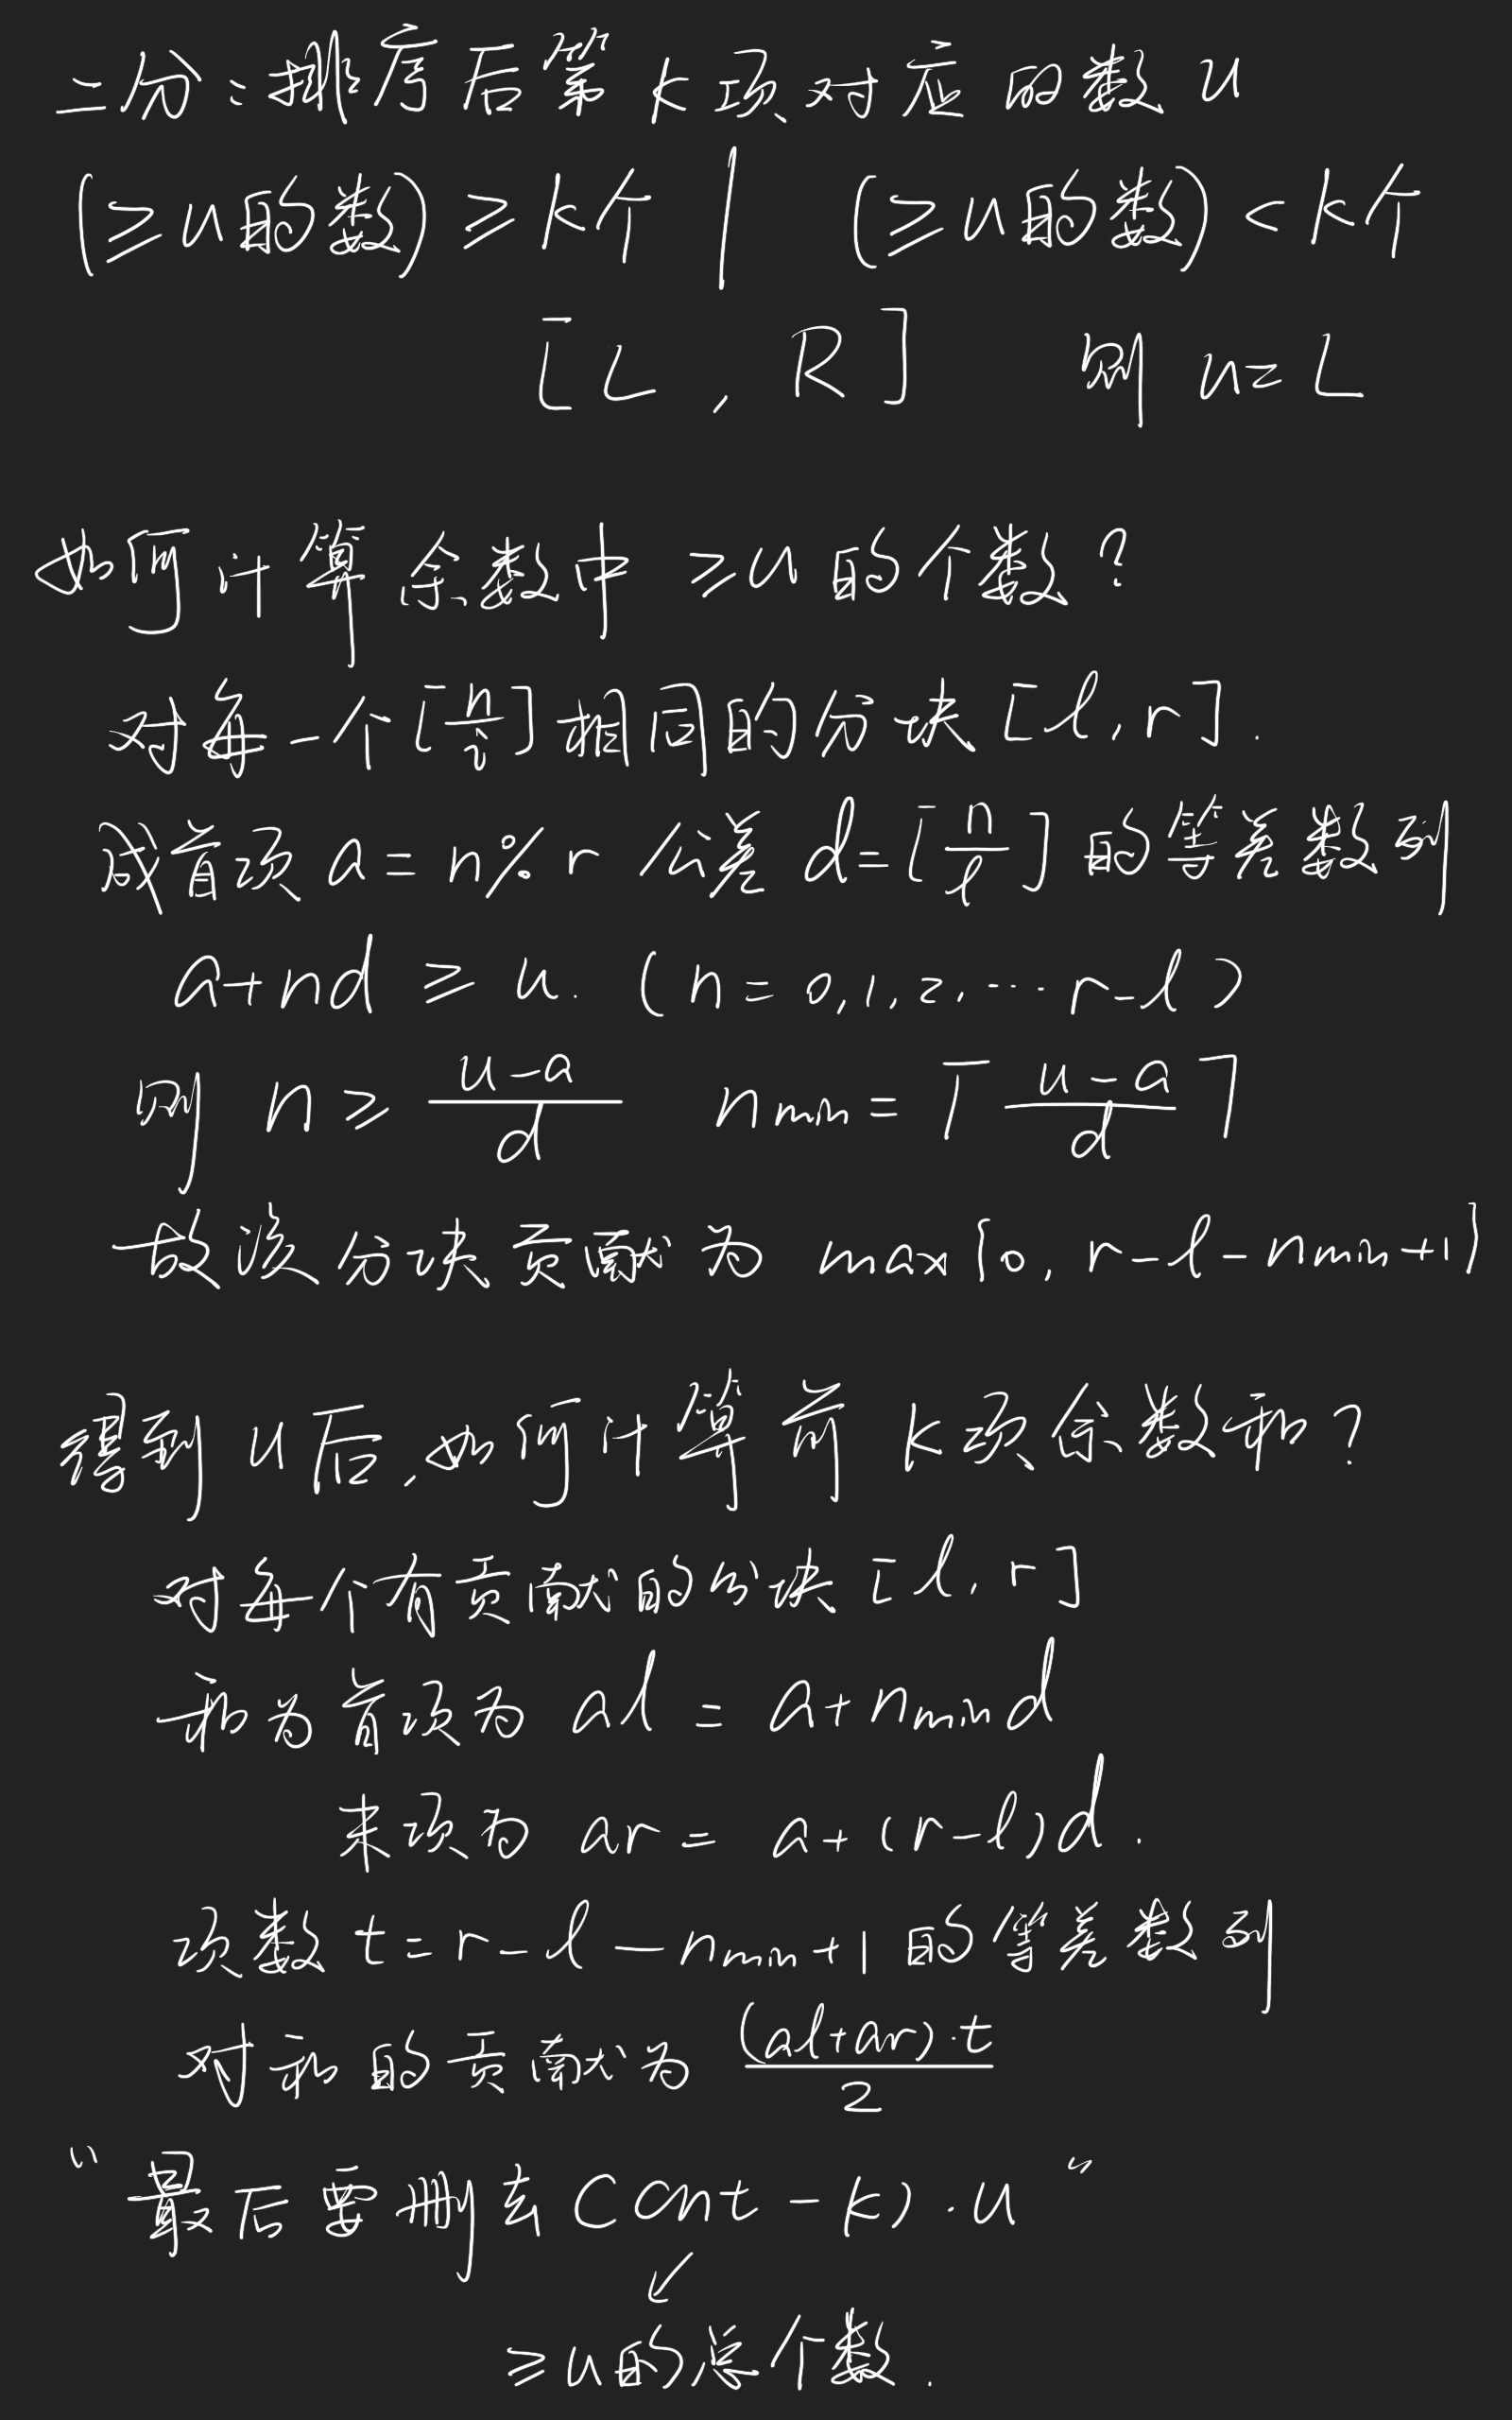 二分：排序后第 k 项对应的数 u
(≥u的数) ≥ k个 | (≥u的数) < k个
[L, R] 则 u=L
如何计算余数中 ≥u 的个数?
对每一个 [n/i] 相同的分块 [l, r].
成首项 a = n%r 公差 d=[n/l] 的等差数列
a+nd ≥ u. (n=0,1,2,…r-l)
则 n ≥ (u-a)/d n min = ⌈(u-a)/d⌉
故该分块贡献为 max{0, r-l-n min+1}
得到 u 后,如何计算前 k 项余数和?
对每个有贡献的分块 [l, r]
和为首项为 al = a+n min d
末项为 ar = a+(r-l)d.
项数 t=r-l-n min+1 的等差数列
对和的贡献为 (al+ar)·t/2
“最后要删去 (cnt-k)·u”
↙
≥u的总个数.